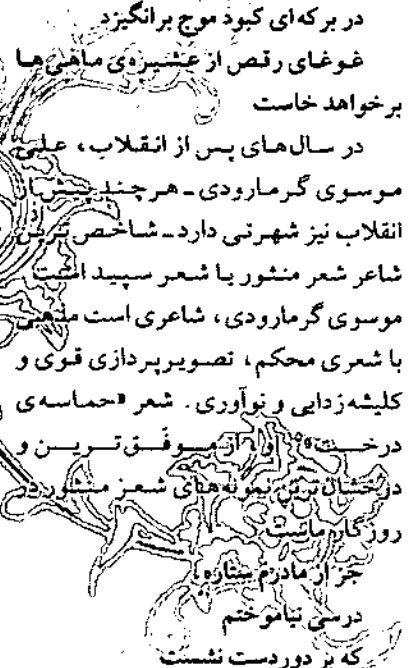 در برکه‌ای کبود موج برانگیزد
غوغای رقص از عشیره‌ی ماهی‌ها
برخواهد خاست
در سال‌های پس از انقلاب، علی
موسوی گرمارودی ـ هرچند پیش از
انقلاب نیز شهرتی دارد ـ شاخص‌ترین
شاعر شعر منثور یا شعر سپید است.
موسوی گرمارودی، شاعری است مذهبی
با شعری محکم، تصویرپردازی قوی و
کلیشه‌زدایی و نوآوری. شعر «حماسه‌ی
درخت» او از موفّق‌ترین و
درخشان‌ترین نمونه‌های شعر منثور در
روزگار ماست:
جز از مادرم ستاره
درسی نیاموختم
که بر دوردست نشست